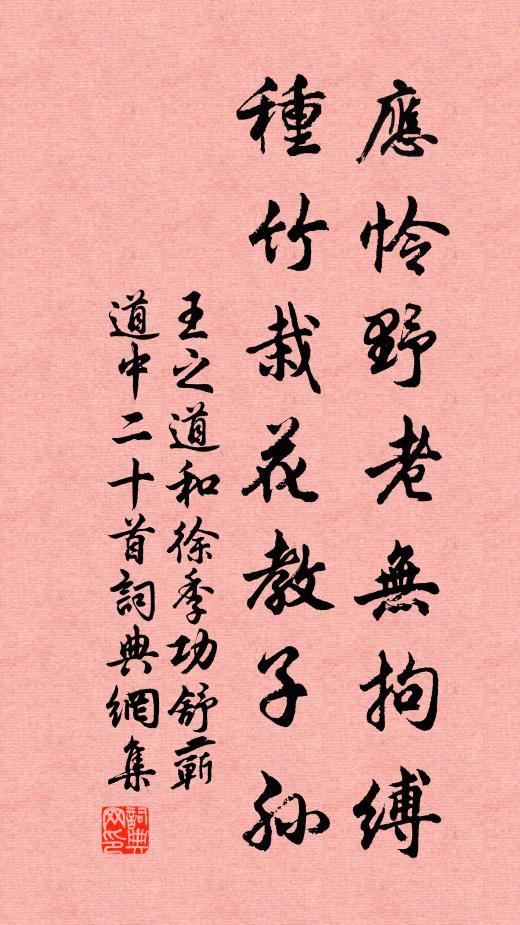 應怜野老無拘縛
種竹栽花教子孫
王之道和徐季功舒蘄
道中二十首詞典網集
詞典网印